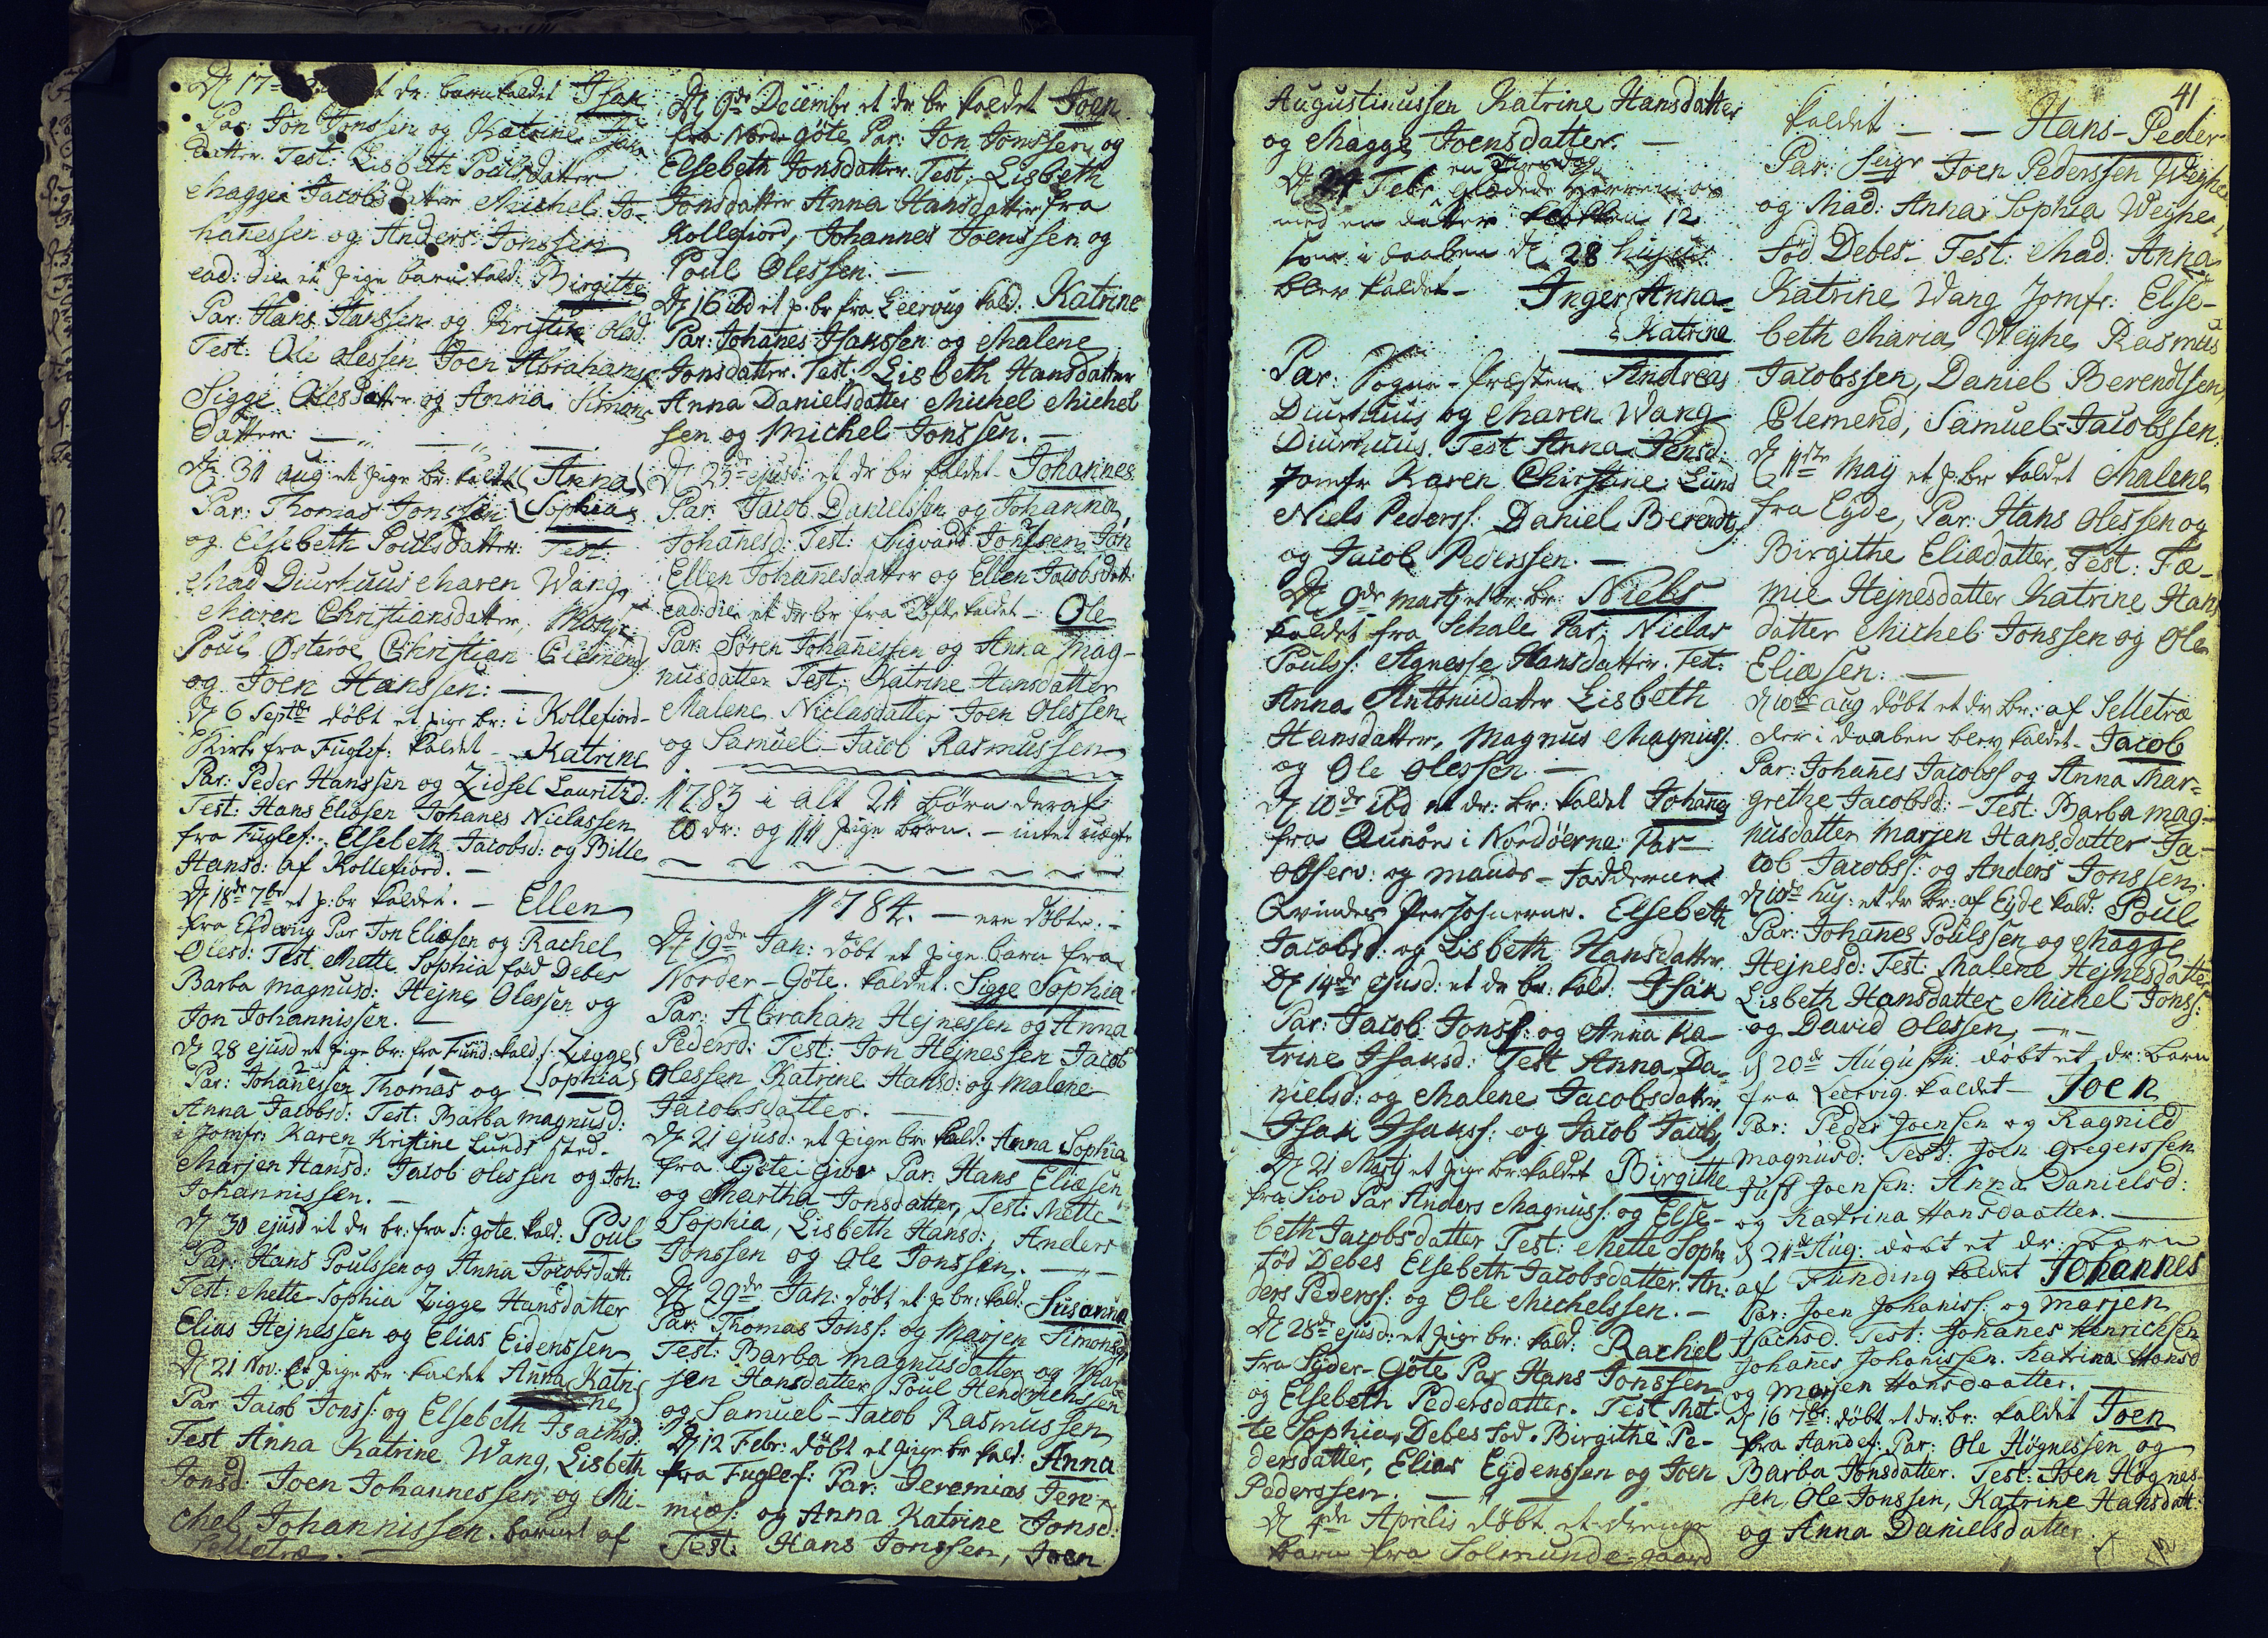 D 17 et dr: barn kaldet Isak
Par: Jon Jonssen og Katrine
datter. Test: Lisbeth Poulsdatter
Magge Jacobsdatter Michel Jo-
hañessen og Anders Jonssen
ead: die et pige barn kald: Birgitte
Par: Hans Hanssen og Kristin Olsd:
Test: Ole Olessen Joen Abrahams
Sigge Olesdatter og Anna Simons
datter.
D 31 aug et pige br: kaldt Anna
Par: Thomas Jonssen Sophia
og Elsebeth Poulsdatter: Test.
Mad Diurhuus Maren Wang,
Maren Christiansdatter, Mons:
Poul Østerøe Christian Clemend
og Joen Hanssen:
D 6 Septbr døbt et pige br: i Kollefiord-
Kirke fra Fuglef: kaldet Katrine
Par: Peder Hanssen og Zidsel Lauritzd:
Test: Hans Eliæsen Johanes Niclassen
fra Fuglef: Elsebeth Jacobsd: og Bille
Hansd: af Kollefiord.
D 18de 7br et p: br kaldet. - Ellen
fra Eldevig Par Jon Eliæsen og Rachel
Olesd: Test Mette Sophia fød Debes
Barba Magnusd: Hejne Olessen og
Jon Johannissen.
D 28 ejusd et pige br: fra Fund: kald: Zigge
Par: Johañessen Thomas og Sophia
Anna Jacobsd: Test: Barba Magnusd:
i Jomfr: Karen Kristine Lunds sted.
Marjen Hansd: Jacob Olessen og Joh:
Johannissen.
D 30 ejusd et dr br: fra S: gøte. kald: Poul
Par: Hans Poulssen og Anna Jacobsdatt:
Test: Mette-Sophia Zigge Hansdatter
Elias Hejnessen og Elias Eidenssen
D 21 Nov: et pige br kaldet Anna Katri
ne
Par Jacob Jonss: og Elsebeth Isachsd:
Test Anna Katrine Wang, Lisbeth
Jonsd Joen Johannessen og Mi-
chel Johannissen. barnet af
Selletræ.
D 9de Decembr et dr br kaldet Joen
fra Norde Gøte Par: Jon Jonssen og
Elsebeth Jonsdatter Test: Lisbeth
Jonsdatter Anna Hansdatter fra
Kollefiord, Johannes Joenssen og
Poul Olessen.
D 16 ibd et p. br fra Leervug kald: Katrine
Par: Johañes Isakssen og Malene
Jonsdatter. Test: Lisbeth Hansdatter
Anna Danielsdatter Michel Michel
sen og Michel Jonssen.
D 23de ejusd: et dr br kaldet Johannes
Par: Jacob Danielssen og Johanna
Johañesd: Test: Sigvard Jonssen Jon
Ellen Johañesdatter og Ellen Jacobsdatt:
ead: die et dr br fra kaldet - Ole
Par: Søren Johañessen og Anna Mag-
nusdatter Test: Katrine Hansdatter
Malene Niclasdatter Joen Olessen
og Samuel-Jacob Rasmussen
1783 i alt 21 børn deraf
10 dr: og 11 pige børn. - intet uægte
1784. - ere døbte. -
D 19de Jan: døbt et pige barn fra
Norder-Gøte. kaldet. Sigge Sophia
Par: Abraham Hejnessen og Anna
Pedersd: Test: Jon Hejnessen Jacob
Olessen Katrine Hansd: og Malene
Jacobsdatter.
D 21 ejusd: et pige br kald: Anna Sophia
fra Gøte Par: Hans Eliæsen
og Martha Jonsdatter, Test: Mette-
Sophia, Lisbeth Hansd:, Anders
Jonssen og Ole Jonssen.
D 29de Jan: døbt et p br: kald: Susanna
Par: Thomas Jonss: og Marjen Simonsd
Test: Barba Magnusdatter og Mar
jen Hansdatter Poul Hendrichssen
og Samuel-Jacob Rasmussen
D 12 Febr: døbt et pige br kald: Anna
fra Fuglef: Par: Jeremias Jere-
miæs: og Anna Katrine Jonsd.
Test: Hans Jonssen, Joen
Augustinussen Katrine Hansdatter
og Magge Joensdatter.
en Tirsdag
D 24 Febr glædede Herren os
med en datter klokken 12
som i daaben D 28 hujus
blev kaldet - Inger Anna
Katrine
Par: Sogne-Præsten Andreas
Diurhuus og Maren Wang
Diurhuus. Test Anna Jensd:
Jomfr Karen Christine Lund
Niels Pederss: Daniel Berendts
og Jacob Pederssen.
D 9de Martj et dr: br: Niels
kaldet fra Schale Par: Niclas
Poulss: Agnesse Hansdatter. Test:
Anna Antonidatter Lisbeth
Hansdatter, Magnus Magnuss:
og Ole Olessen
D 10de ibd et dr: br: kaldet Johañes
fra Qunøe i Nordøerne: Par
observ: og mands-Fadderne
Qvindes Personerne. Elsebeth
Jacobsd: og Lisbeth Hansdatter
D 14de ejusd: et dr br: kald: Isak
Par: Jacob Jonss: og Anna Ka-
trine Isaksd: Test Anna Da-
nielsd: og Malene Jacobsdatter.
Isak Isakss: og Jacob Jacobs
D 21 Martj et pige br: kaldet Birgithe
fra Siov Par Anders Magnuss: og Else-
beth Jacobsdatter Test: Mette Soph:
fød Debes Elsebeth Jacobsdatter. An:
ders Pederss: og Ole Michelssen.
D 28de ejusd: et pige br: kald: Rachel
fra Syder-Gøte Par Hans Jonssen
og Elsebeth Pedersdatter. Test Met-
te Sophia Debes fød. Birgithe Pe-
dersdatter, Elias Eydenssen og Joen
Pederssen.
D 4de Aprilis døbt et drenge
barn fra Solmunde-gaard
41
kaldet - - Hans-Peder
Par: Seigr Joen Pederssen Weyhe
og Mad: Anna Sophia Weyhe
fød Debes- Test: Mad. Anna
Katrine Wang Jomfr: Else-
beth Maria Weyhe, Rasmus
Jacobssen, Daniel Berendtsen,
Clemend, Samuel-Jacobssen.
D 11te Maÿ et p: br kaldet Malene
fra Eyde, Par: Hans Olessen og
Birgithe Eliædatter, Test: Fæ-
mie Hejnesdatter Katrine Hans
datter Michel Jonssen og Ole
Eliæsen:
D 10de aug døbt et dr br: af Selletræ
der i daaben blev kaldet - Jacob
Par: Johañes Jacobss og Anna Mar-
grethe Jacobsd: - Test: Barba Mag-
nusdatter Marjen Hansdatter Ja-
cob Jacobss: og Anders Jonssen.
D 10de huj: et dr br: af Eyde kald: Poul
Par: Johañes Poulssen og Magge
Hejnesd: Test: Malene Hejnesdatter
Lisbeth Hansdatter Michel Jonss:
og David Olessen,
D 20de Augusti døbt et dr: barn
fra Leervig. kaldet - Joen
Par: Peder Joensen og Ragnild
Magnusd: Test: Joen Gregerssen
Just Joensen: Anna Danielsd:
og Katrina Hansdaatter.
D 21de Aug: døbt et dr: barn
af Funding kaldet Johannes
Par: Joen Johaniss: og Marjen
Isachsd. Test: Johanes Henrichsen
Johañes Johanissen. Katrina Hansd
og Marjen Hansdaatter.
D 16 7br: døbt et dr: br: kaldet Joen
fra Andef: Par: Ole Høgnessen og
Barba Jonsdatter. Test: Joen Høgnes-
sen, Ole Jonssen, Katrine Hansdatt:
og Anna Danielsdatter